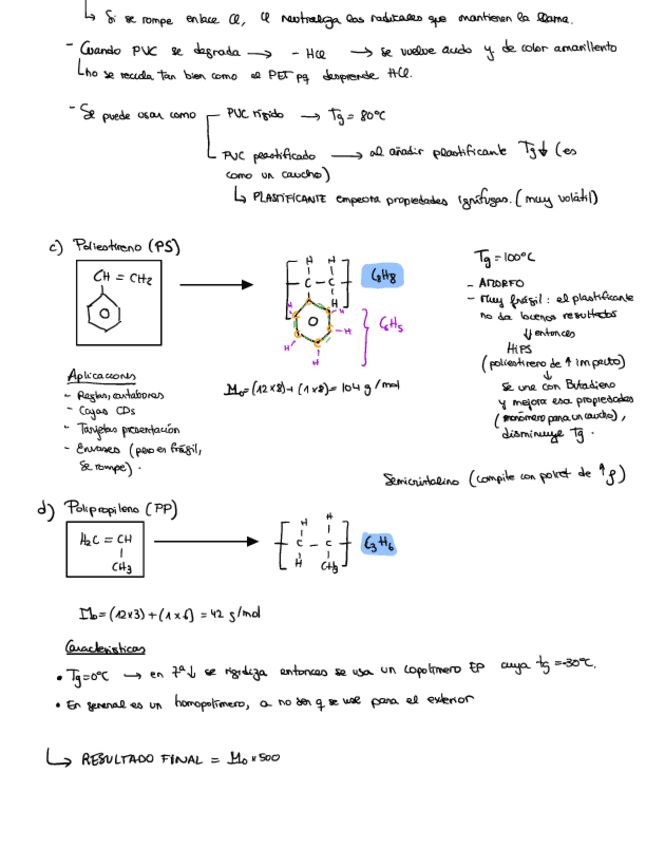 ↳ Si se rompe enlace Cl, Cl neutraliza los radicales que mantienen la llama.
- Cuando PVC se degrada → - HCl → se vuelve ácido y de color amarillento
↳ no se recicla tan bien como el PET pq desprende HCl.
- Se puede usar como
PVC rígido → Tg = 80ºC
PVC plastificado → al añadir plastificante Tg↓ (es
como un caucho)
↳ PLASTIFICANTE empeora propiedades ignífugas. (muy volátil)
c) Poliestireno (PS)
CH = CH2
H H
C - C
H
C8H8
H H H H H
C6H5
Tg = 100ºC
- AMORFO
- Muy frágil: el plastificante
no da buenos resultados
↓ entonces
HIPS
(poliestireno de ↑ impacto)
↓
Se une con Butadieno
y mejora esa propiedades
(monómero para un caucho),
disminuye Tg.
Aplicaciones
- Reglas, cortabores
- Cajas CDs
- Tarjetas presentación
- Envases (pero es frágil,
se rompe).
M0 = (12×8) + (1×8) = 104 g/mol
Semicristalino (compite con poliet de ↑ρ)
d) Polipropileno (PP)
H2C = CH
CH3
H H
C - C
H CH3
C3H6
M0 = (12×3) + (1×6) = 42 g/mol
Características
• Tg = 0ºC → en Tª↓ se rigidiza entonces se usa un copolímero EP cuya tg = -30ºC.
• En general es un homopolímero, a no ser q se use para el exterior
↳ RESULTADO FINAL = M0 × 500